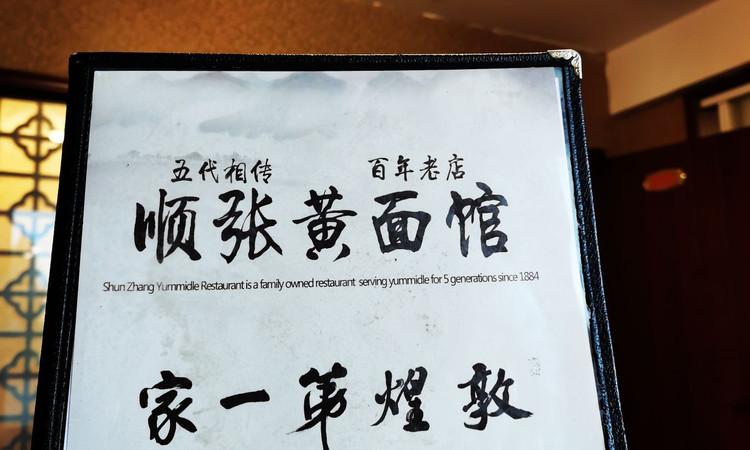 五代相传 百年老店
顺张黄面馆
Shun Zhang Yummidle Restaurant is a family owned restaurant serving yummidle for 5 generations since 1884
家一第煌敦